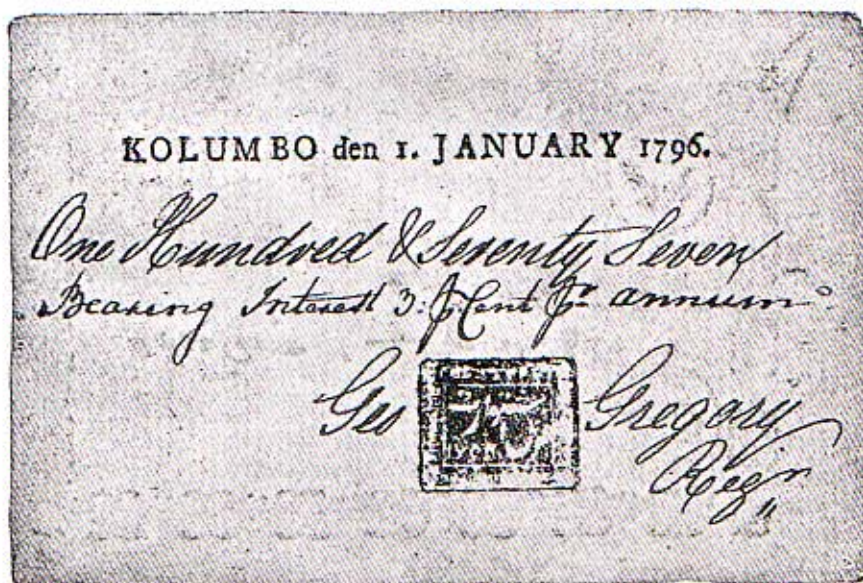 KOLUMBO den 1. JANUARY 1796.
One Hundred & Seventy Seven
Bearing Interest 3. P Cent Pr annum
Geo Gregory
Regr